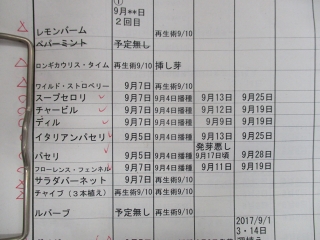 ①
9月**日
2回目
レモンバーム 再生術9/10
ペパーミント 予定無し
ロンギカウリス・タイム 再生術9/10 挿し芽
ワイルド・ストロベリー 9月7日 再生術9/10
スープセロリ 9月7日 9月4日播種 9月13日 9月25日
チャービル 9月7日 9月4日播種 9月13日 9月25日
ディル 9月7日 9月4日播種 9月13日 9月25日
イタリアンパセリ 9月5日 9月4日播種 9月13日 9月25日
発芽悪し
パセリ 9月5日 9月4日播種 9月17日頃 9月28日
フローレンス・フェンネル 9月7日 9月4日播種 9月11日 9月19日
サラダバーネット 9月7日 再生術9/10
チャイブ(3本植え) 再生術9/10 再生術9/10
ルバーブ 予定無し 再生術9/10
2017/9/1
3・14日